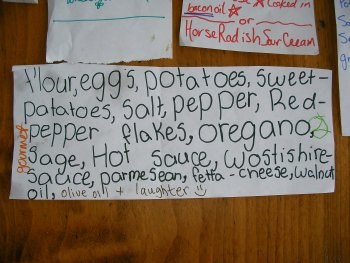 bacon oil ☆
Cooked in
or
Horse Radish Sour Cream
Flour, eggs, potatoes, sweet-
potatoes, salt, pepper, Red-
pepper flakes, oregano,
Sage, Hot sauce, wostishire-
sauce, parmesean, fetta-cheese, walnut
oil, olive oil + laughter ☺